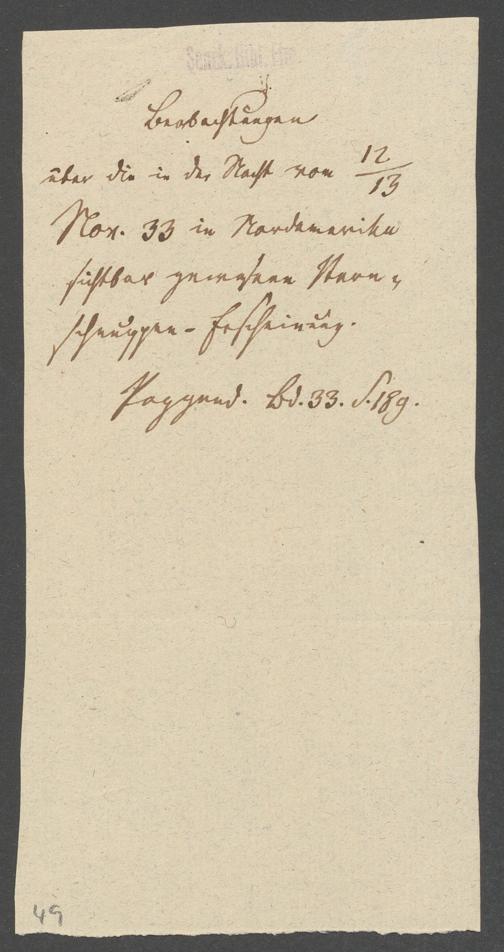 Senck. Bibl. Ffm
Beobachtungen
über die in der Nacht vom 12/13
Nov. 33 in Nordamerika
sichtbar gewesene Stern-
schnuppen-Erscheinung.
Poggend. Bd. 33. S. 189.
49